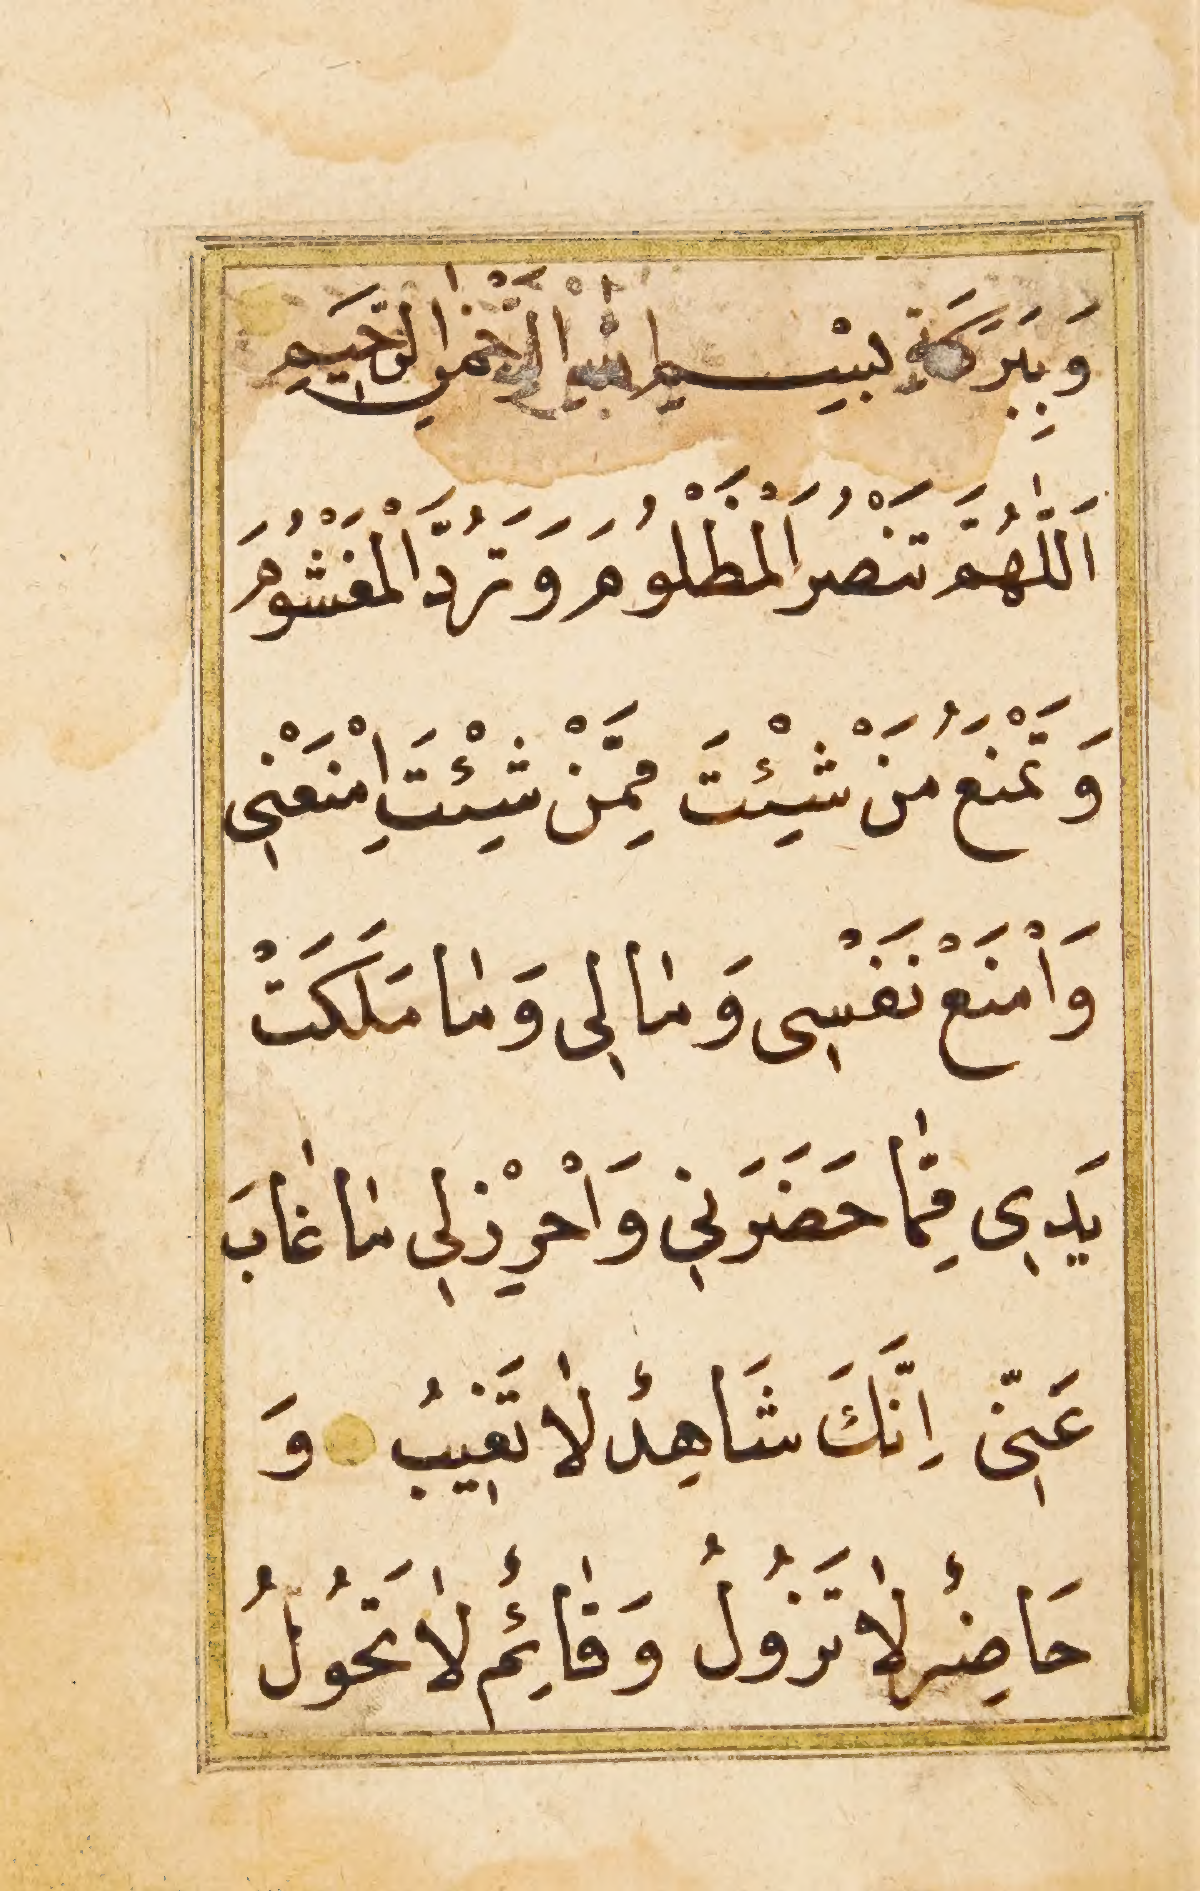 وَبِبَرَكَةِ بِسْــمِ اللّٰهِ الرَّحْمٰنِ الرَّحٖيمِ
اَللّٰهُمَّ تَنْصُرُ الْمَظْلُومَ وَتَرُدُّ الْمَغْشُومَ
وَتَمْنَعُ مَنْ شِئْتَ مِمَّنْ شِئْتَ اِمْنَعْنٖى
وَامْنَعْ نَفْسٖى وَمٰالٖى وَمٰا مَلَكَتْ
يَدٖى مِمّٰا حَضَرَنٖي وَاَحْرِزْلٖى مٰا غٰابَ
عَنّٖى اِنَّكَ شَاهِدٌ لٰا تَغٖيبُ وَ
حَاضِرٌ لٰا تَزُولُ وَقٰائِمٌ لٰا تَحُولُ